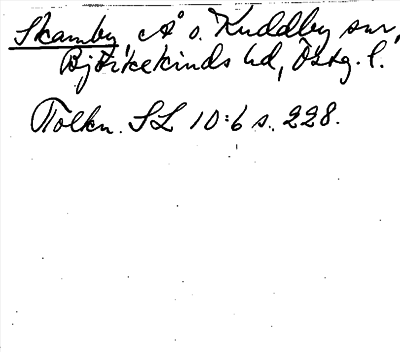 Skamby Å o. Kuddby snr,
Björkekinds hd, Östg. l.
Tolkn. SL 10:6 s. 228.